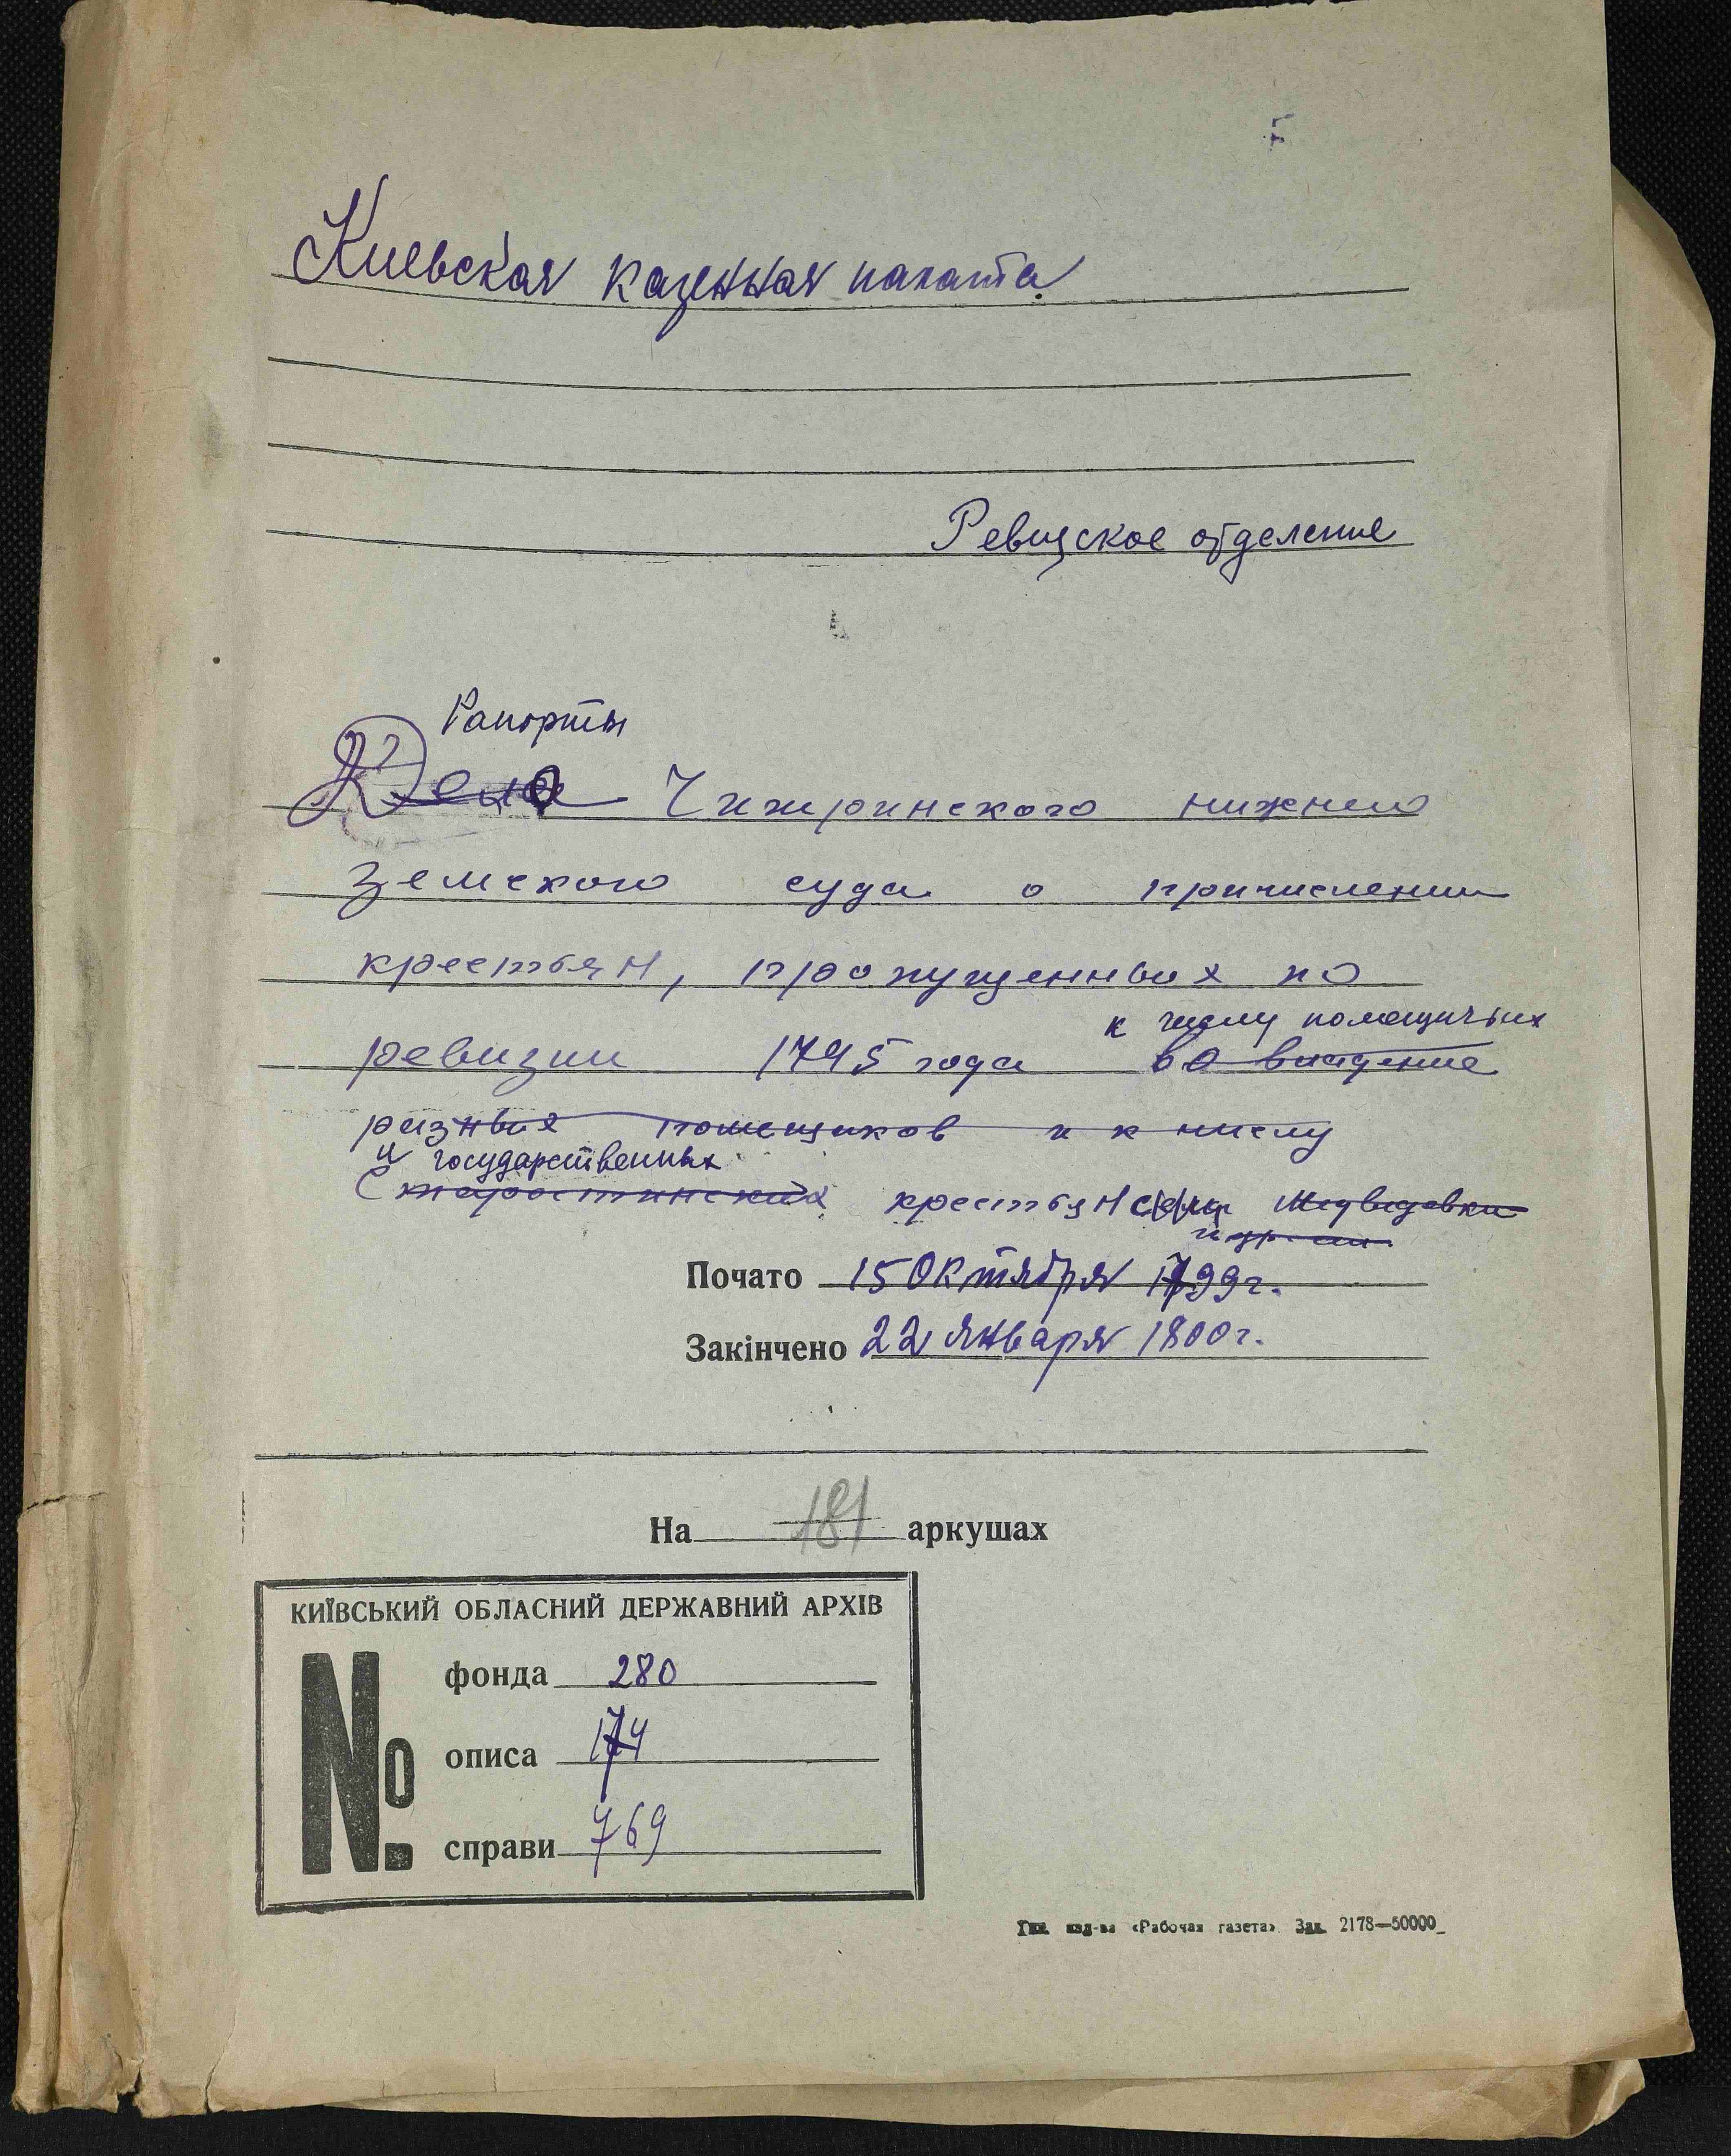 Киевская казенная палата
Ревизское отделение
Рапорты
Дело Чигиринского нижнего
земского суда о причислении
крестьян, пропущенных по
к числу помещичьих
ревизии 1795 года во владение
разных помещиков и к числу
и государственных
Старостинских крестьян села Медведовки
и др. сел.
Почато 15 Октября 1799 г.
Закінчено 22 января 1800 г.
На 181 аркушах
КИЇВСЬКИЙ ОБЛАСНИЙ ДЕРЖАВНИЙ АРХІВ
№ фонда 280
описа 174
справи 769
Тип. изд-ва «Рабочая газета» Зак. 2178—50000